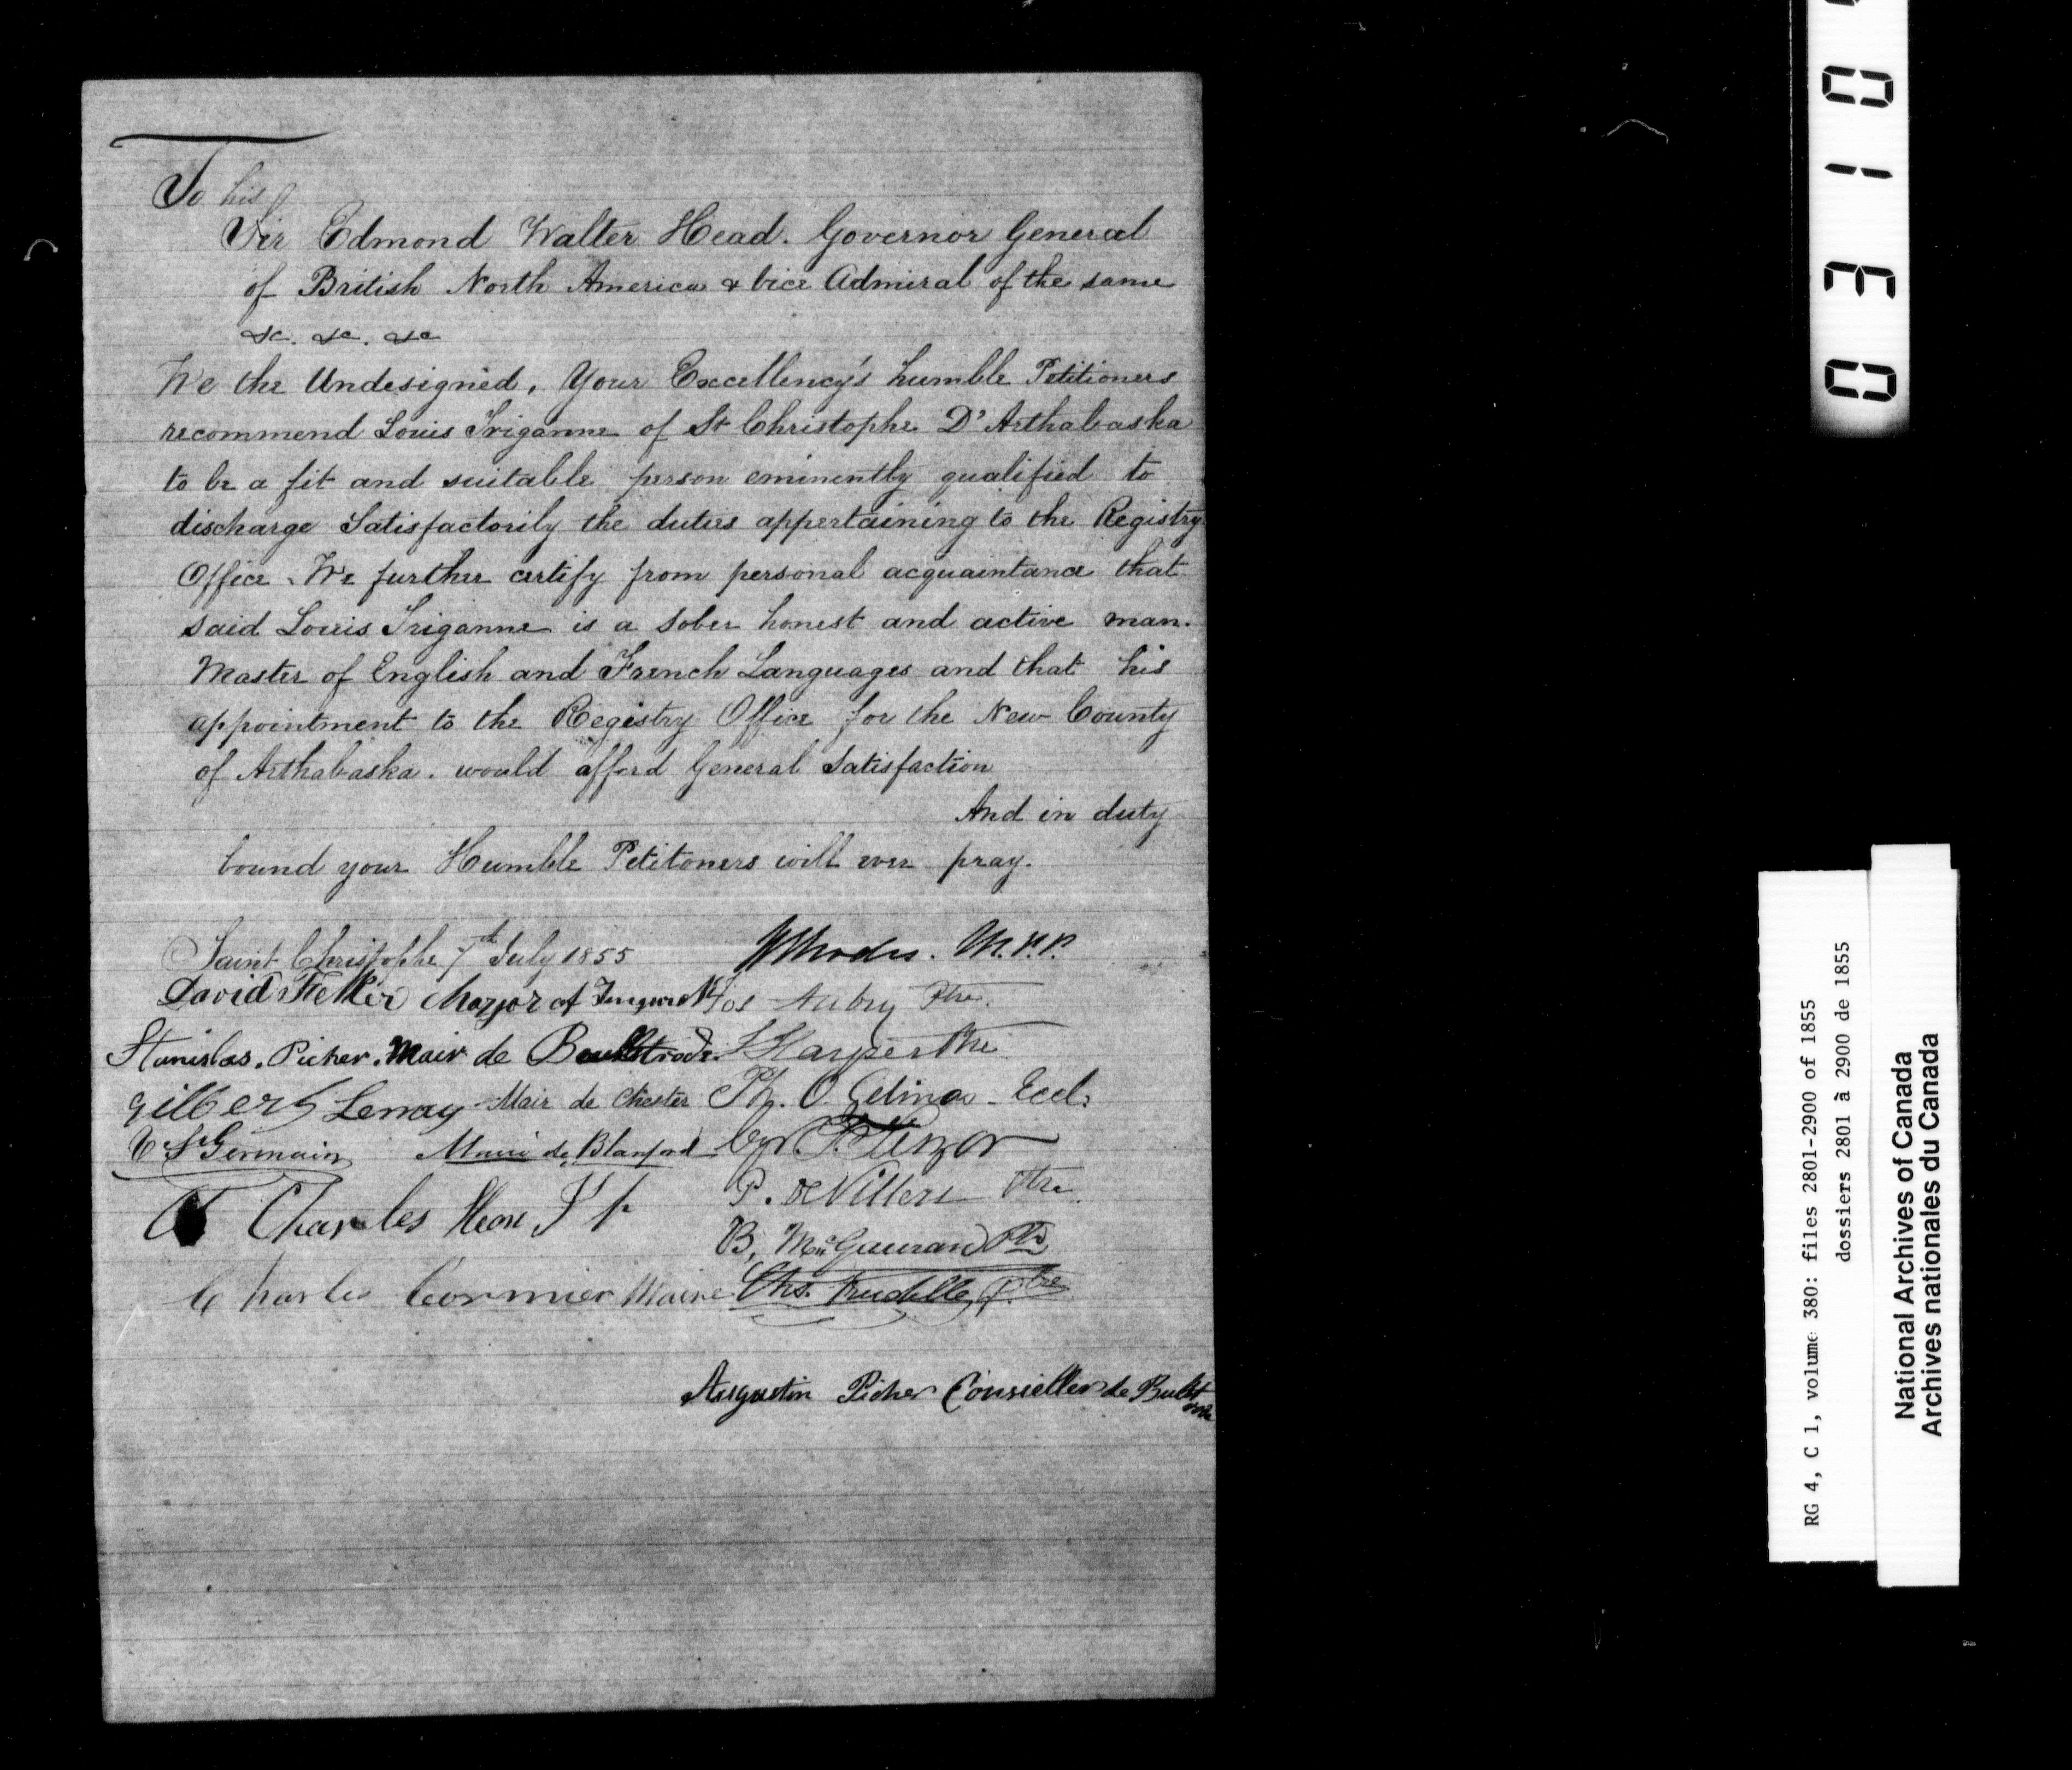 To his
Sir Edmond Walter Head. Governor General
of British North America & vice Admiral of the same
&c. &c. &c
We the Undesigned, Your Excellency's humble Petitioners
recommend Louis Triganne of St Christophe D'Arthabaska
to be a fit and suitable person eminently qualified to
discharge Satisfactorily the duties appertaining to the Registry
Office. We further certify from personal acquaintance that
said Louis Triganne is a sober honest and active man.
Master of English and French Languages and that his
appointment to the Registry Office for the New County
of Arthabaska. would afford General Satisfaction
And in duty
bound your Humble Petitoners will ever pray.
Saint Christophe 7th July 1855
W Rhodes. M.P.P.
David Mayor of
Jos Aubry Ptre.
Stanislas. Picher. Mair de Boulstrode
Harper Ptre
gilbert Lemay Mair de Chester
Ph. O. Gelinas Eccl.
St Germain Maire de Blanford
P. de Villers Ptre.
Charles Heon J P
B, McGauran Ptre
Charles Cormier Maire
Chs. Trudelle, ptre
Augustin Picher Consieller de Bulstrode
0310
RG 4, C 1, volume 380: files 2801-2900 of 1855
dossiers 2801 à 2900 de 1855
National Archives of Canada
Archives nationales du Canada